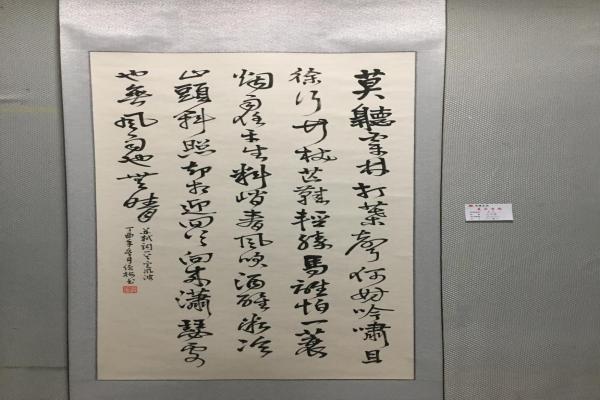 莫聽穿林打葉聲何妨吟嘯且
徐行竹杖芒鞋輕勝馬誰怕一蓑
烟雨任平生料峭春風吹酒醒微冷
山頭斜照却相迎回首向来瀟瑟處
也無風雨也無晴
苏軾詞定風波
丁酉年月書